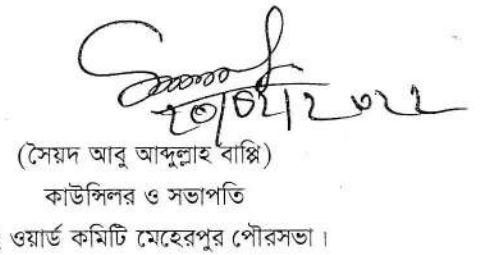 ২০/০২/২০২২
(সৈয়দ আবু আব্দুল্লাহ বাপ্পি)
কাউন্সিলর ও সভাপতি
ওয়ার্ড কমিটি মেহেরপুর পৌরসভা।